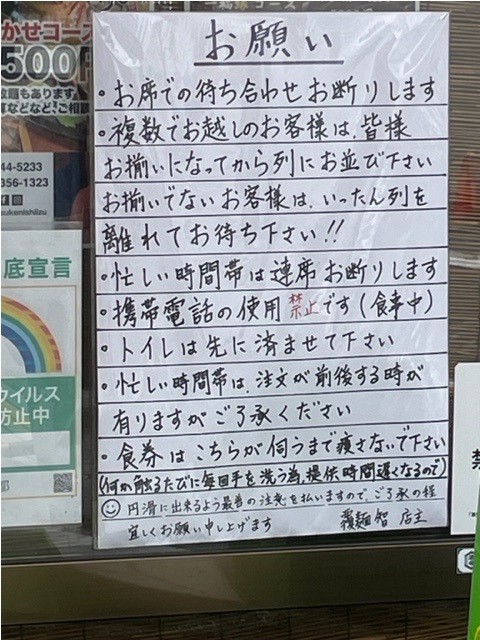 かせコース
500円
数種もあります
ご相談
44-5233
356-1323
sukenishiizu
底宣言
ウイルス
防止中
お願い
・お席での待ち合わせお断りします
・複数でお越しのお客様は、皆様
お揃いになってから列にお並び下さい
お揃いでないお客様は、いったん列を
離れてお待ち下さい!!
・忙しい時間帯は連席お断りします
・携帯電話の使用禁止です(食事中)
・トイレは先に済ませて下さい
・忙しい時間帯は、注文が前後する時が
有りますがご了承ください
・食券はこちらが伺うまで渡さないで下さい
(何か触るたびに毎回手を洗う為、提供時間遅くなるので)
円滑に出来るよう最善の注意を払いますので、ご了承の程
宜しくお願い申し上げます
覆麺 智 店主